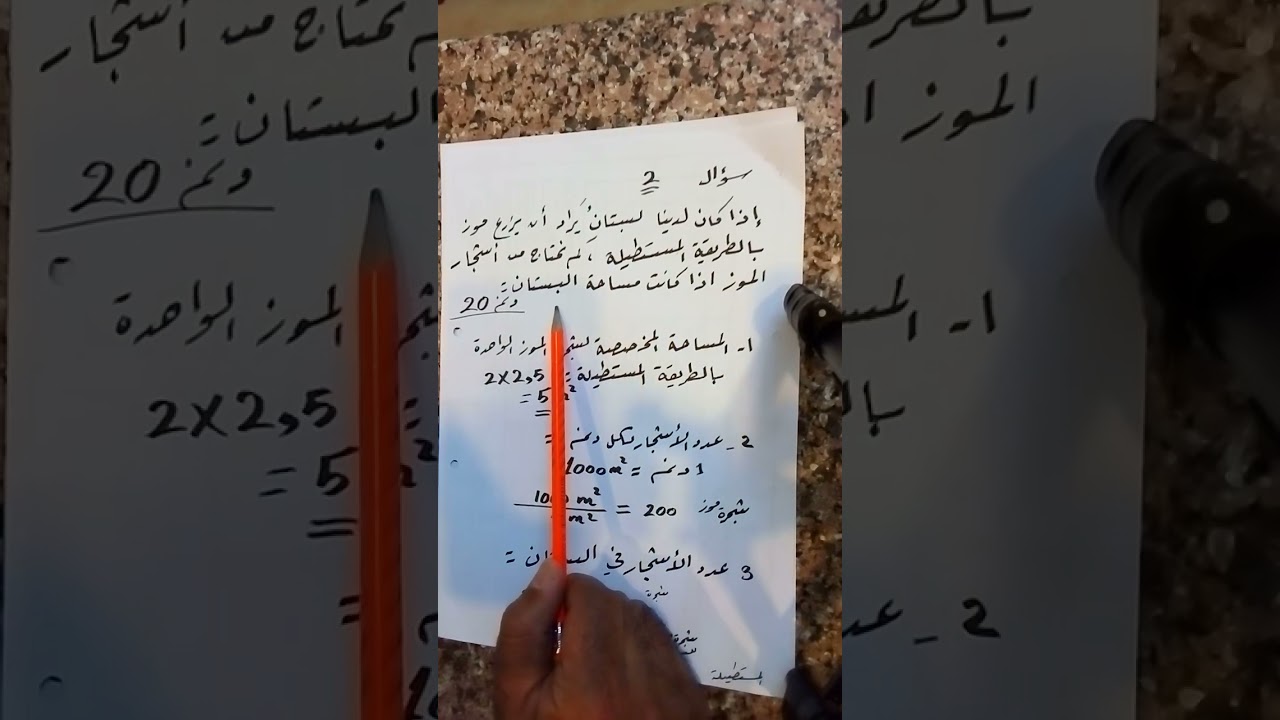 سؤال 2
إذا كان لدينا بستان يُراد أن يزرع موز
بالطريقة المستطيلة، كم نحتاج من أشجار
الموز اذا كانت مساحة البستان =
20 دنم
1- المساحة المخصصة لشجرة الموز الواحدة
بالطريقة المستطيلة = 2x2,5
= 5 m²
2- عدد الأشجار لكل دنم =
1 دنم = 1000 m²
1000 m² / m² = 200 شجرة موز
3 عدد الأشجار في البستان =
شجرة
شجرة
المستطيلة